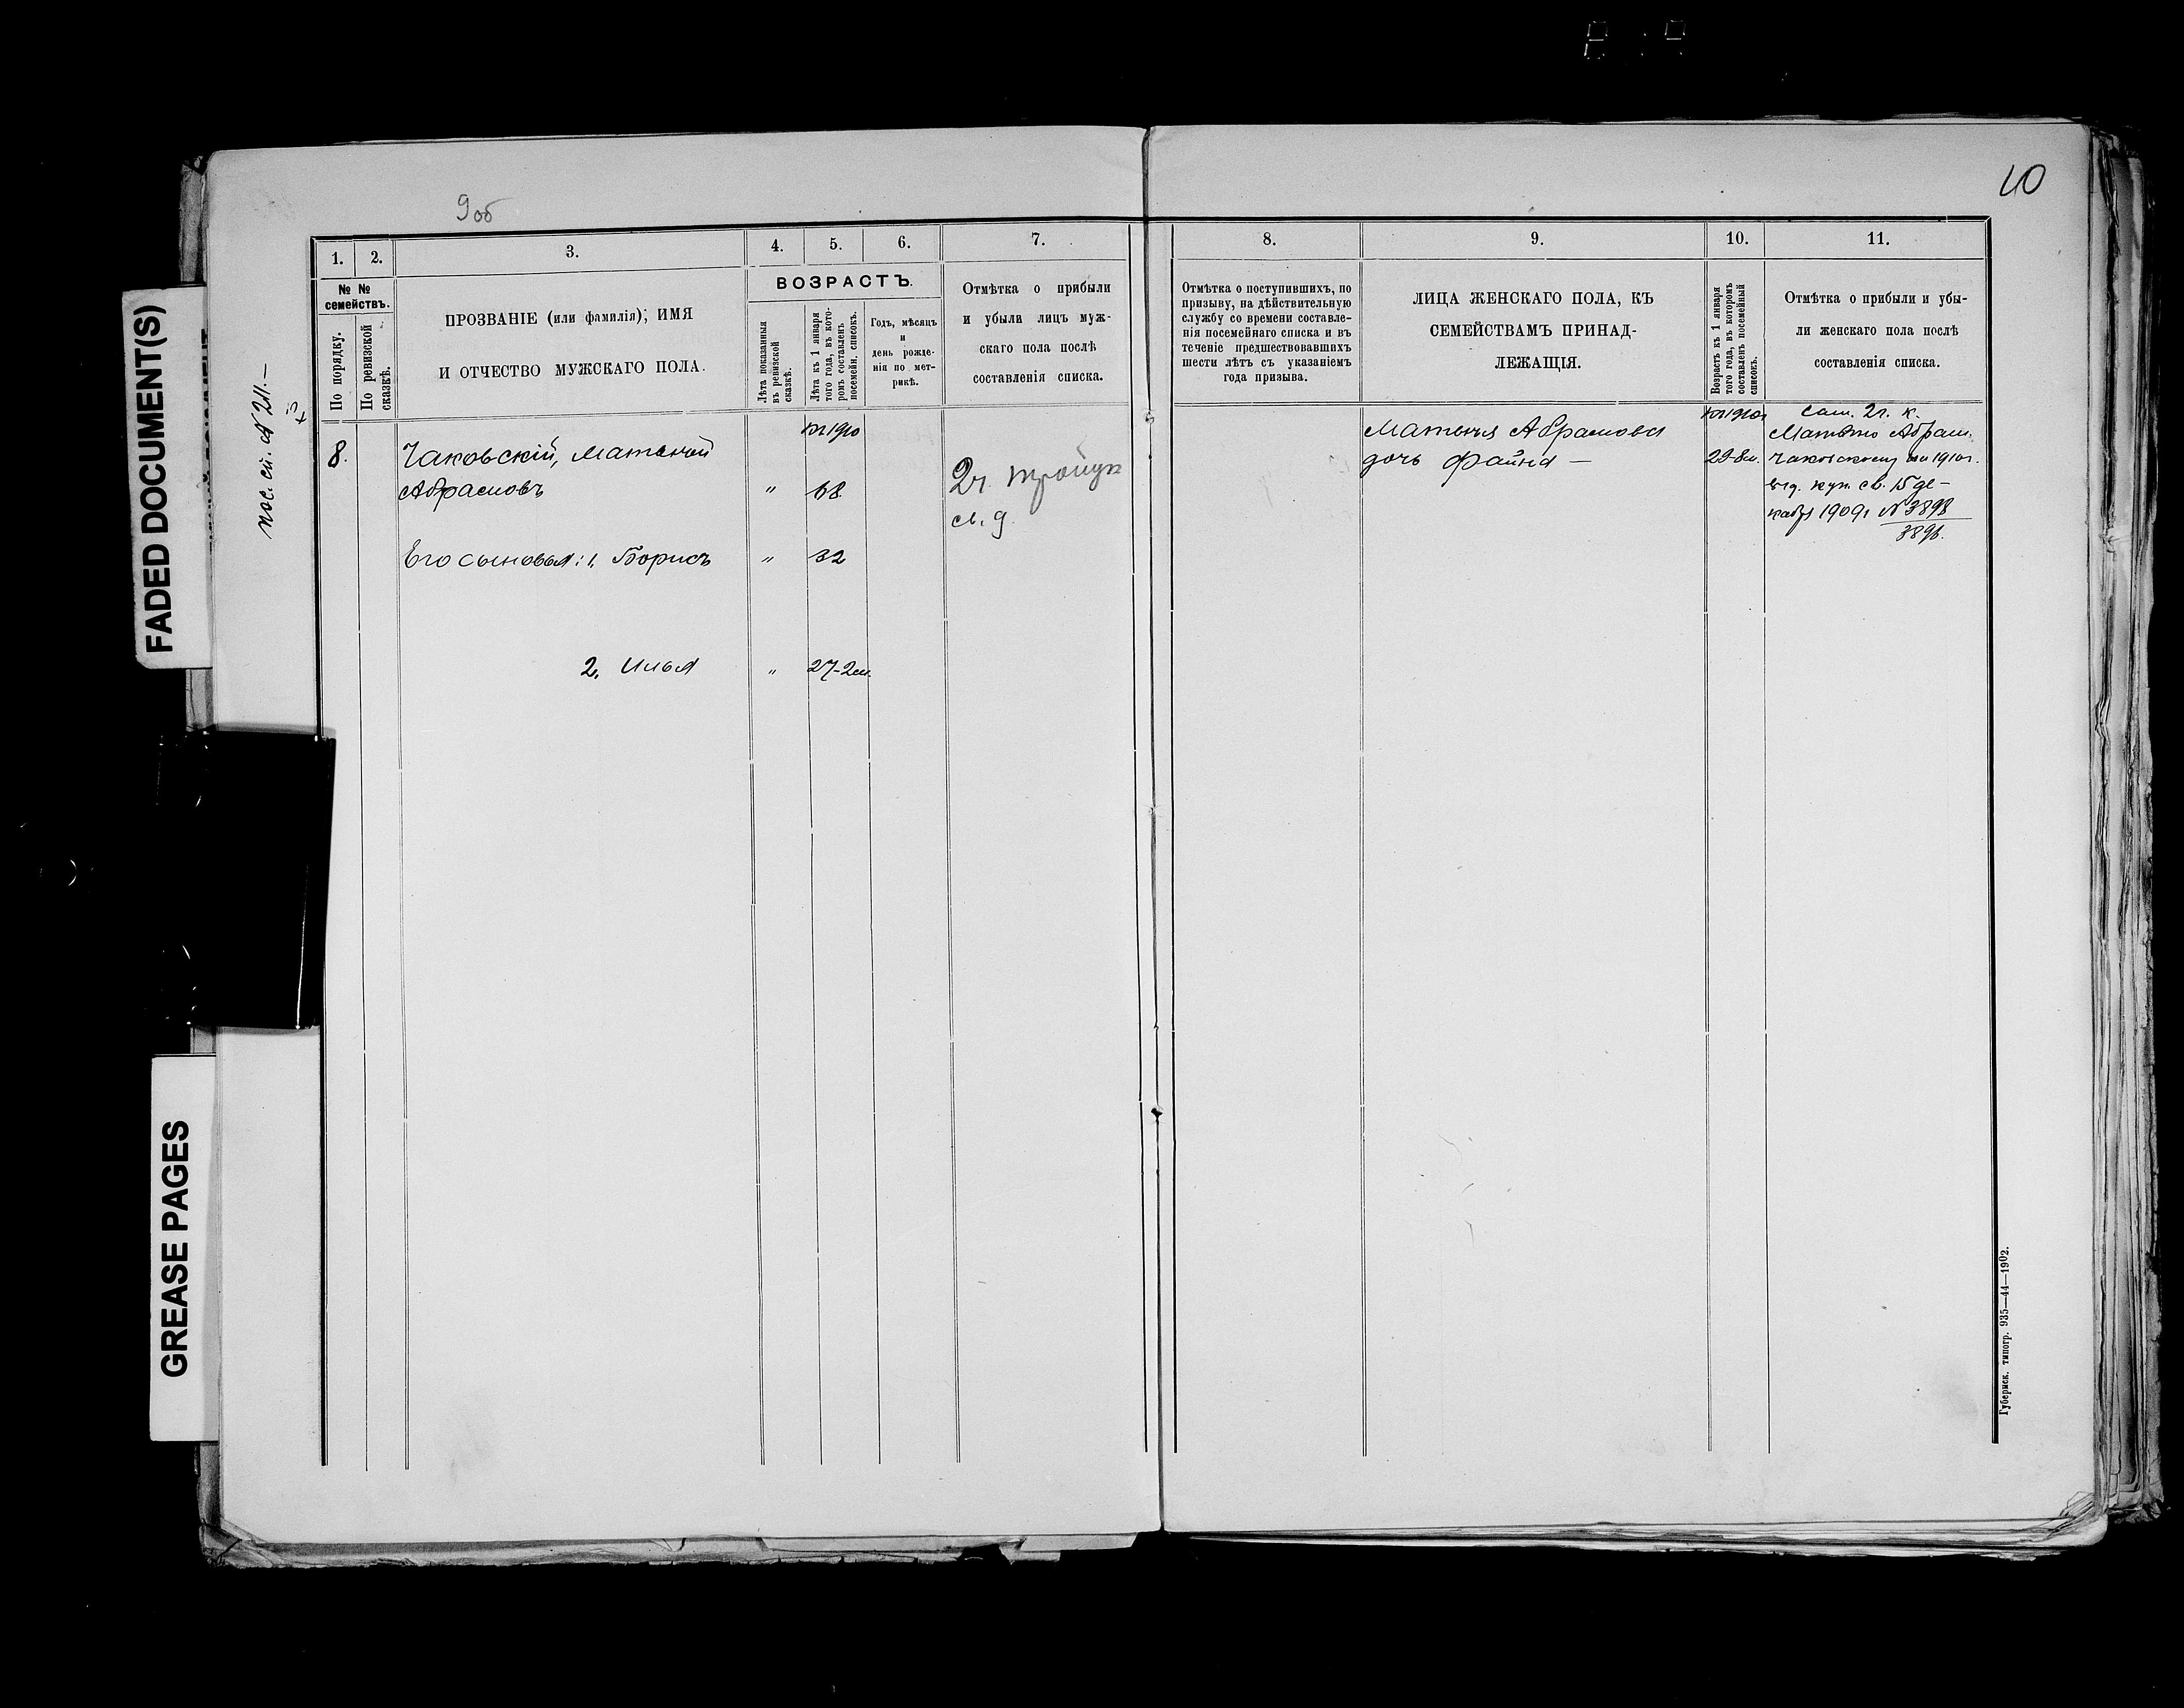 FADED DOCUMENT(S)
GREASE PAGES
9об
10
пос. сп. № 211.–
1. 2. 3. 4. 5. 6. 7.
№ №
семействъ.
По порядку.
По ревизской
сказкѣ.
ПРОЗВАНІЕ (или фамилія), ИМЯ
И ОТЧЕСТВО МУЖСКАГО ПОЛА.
ВОЗРАСТЪ.
Лѣта показанныя
въ ревизской
сказкѣ.
Лѣта къ 1 января
того года, въ кото-
ромъ составленъ
посемейн. списокъ.
Годъ, мѣсяцъ
и
день рожде-
нія по мет-
рикѣ.
Отмѣтка о прибыли
и убыли лицъ муж-
скаго пола послѣ
составленія списка.
на 1910
8. Чаковскій,
Абрамовъ " 68
2 г.
св. д.
Его сыновья: 1. Борисъ " 32
2. Илья " 27-2м.
8. 9. 10. 11.
Отмѣтка о поступившихъ, по
призыву, на дѣйствительную
службу со времени составле-
нія посемейнаго списка и въ
теченіе предшествовавшихъ
шести лѣтъ съ указаніемъ
года призыва.
ЛИЦА ЖЕНСКАГО ПОЛА, КЪ
СЕМЕЙСТВАМЪ ПРИНАД-
ЛЕЖАЩІЯ.
Возрастъ къ 1 января
того года, въ которомъ
составленъ посемейный
списокъ.
Отмѣтка о прибыли и убы-
ли женскаго пола послѣ
составленія списка.
на 1910г
Абрамова
дочь Файна – 29-8м.
Сам. 2 г. к.
Абрам.
Чаковскому на 1910 г.
выд. куп. св. 15 де-
кабря 1909 г № 3898
3896.
Губернск. типогр. 935—44—1902.